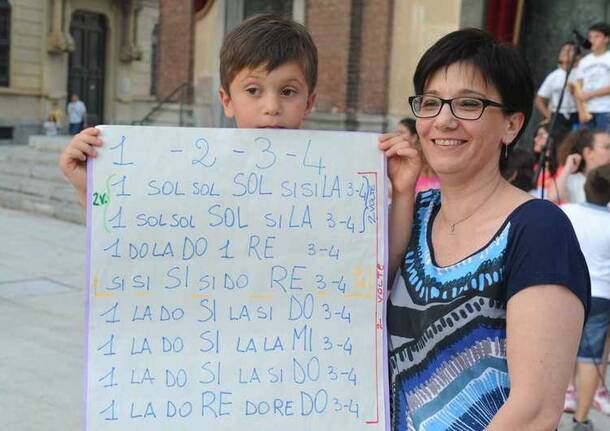 1 - 2 - 3 - 4
2V. 1 SOL SOL SOL SI SI LA 3-4 2 VOLTE
1 SOL SOL SOL SI LA 3-4
1 DO LA DO 1 RE 3-4
SI SI SI SI DO RE 3-4
1 LA DO SI LA SI DO 3-4 2 VOLTE
1 LA DO SI LA LA MI 3-4
1 LA DO SI LA SI DO 3-4
1 LA DO RE DO RE DO 3-4